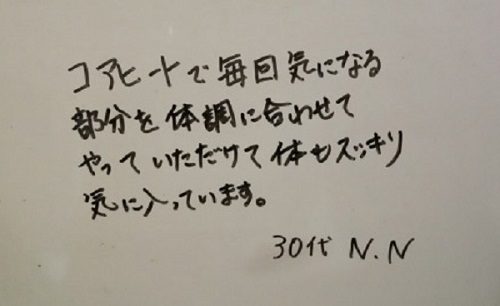 コアヒートで毎回気になる
部分を体調に合わせて
やっていただけて体もスッキリ
気に入っています。
30代 N.N